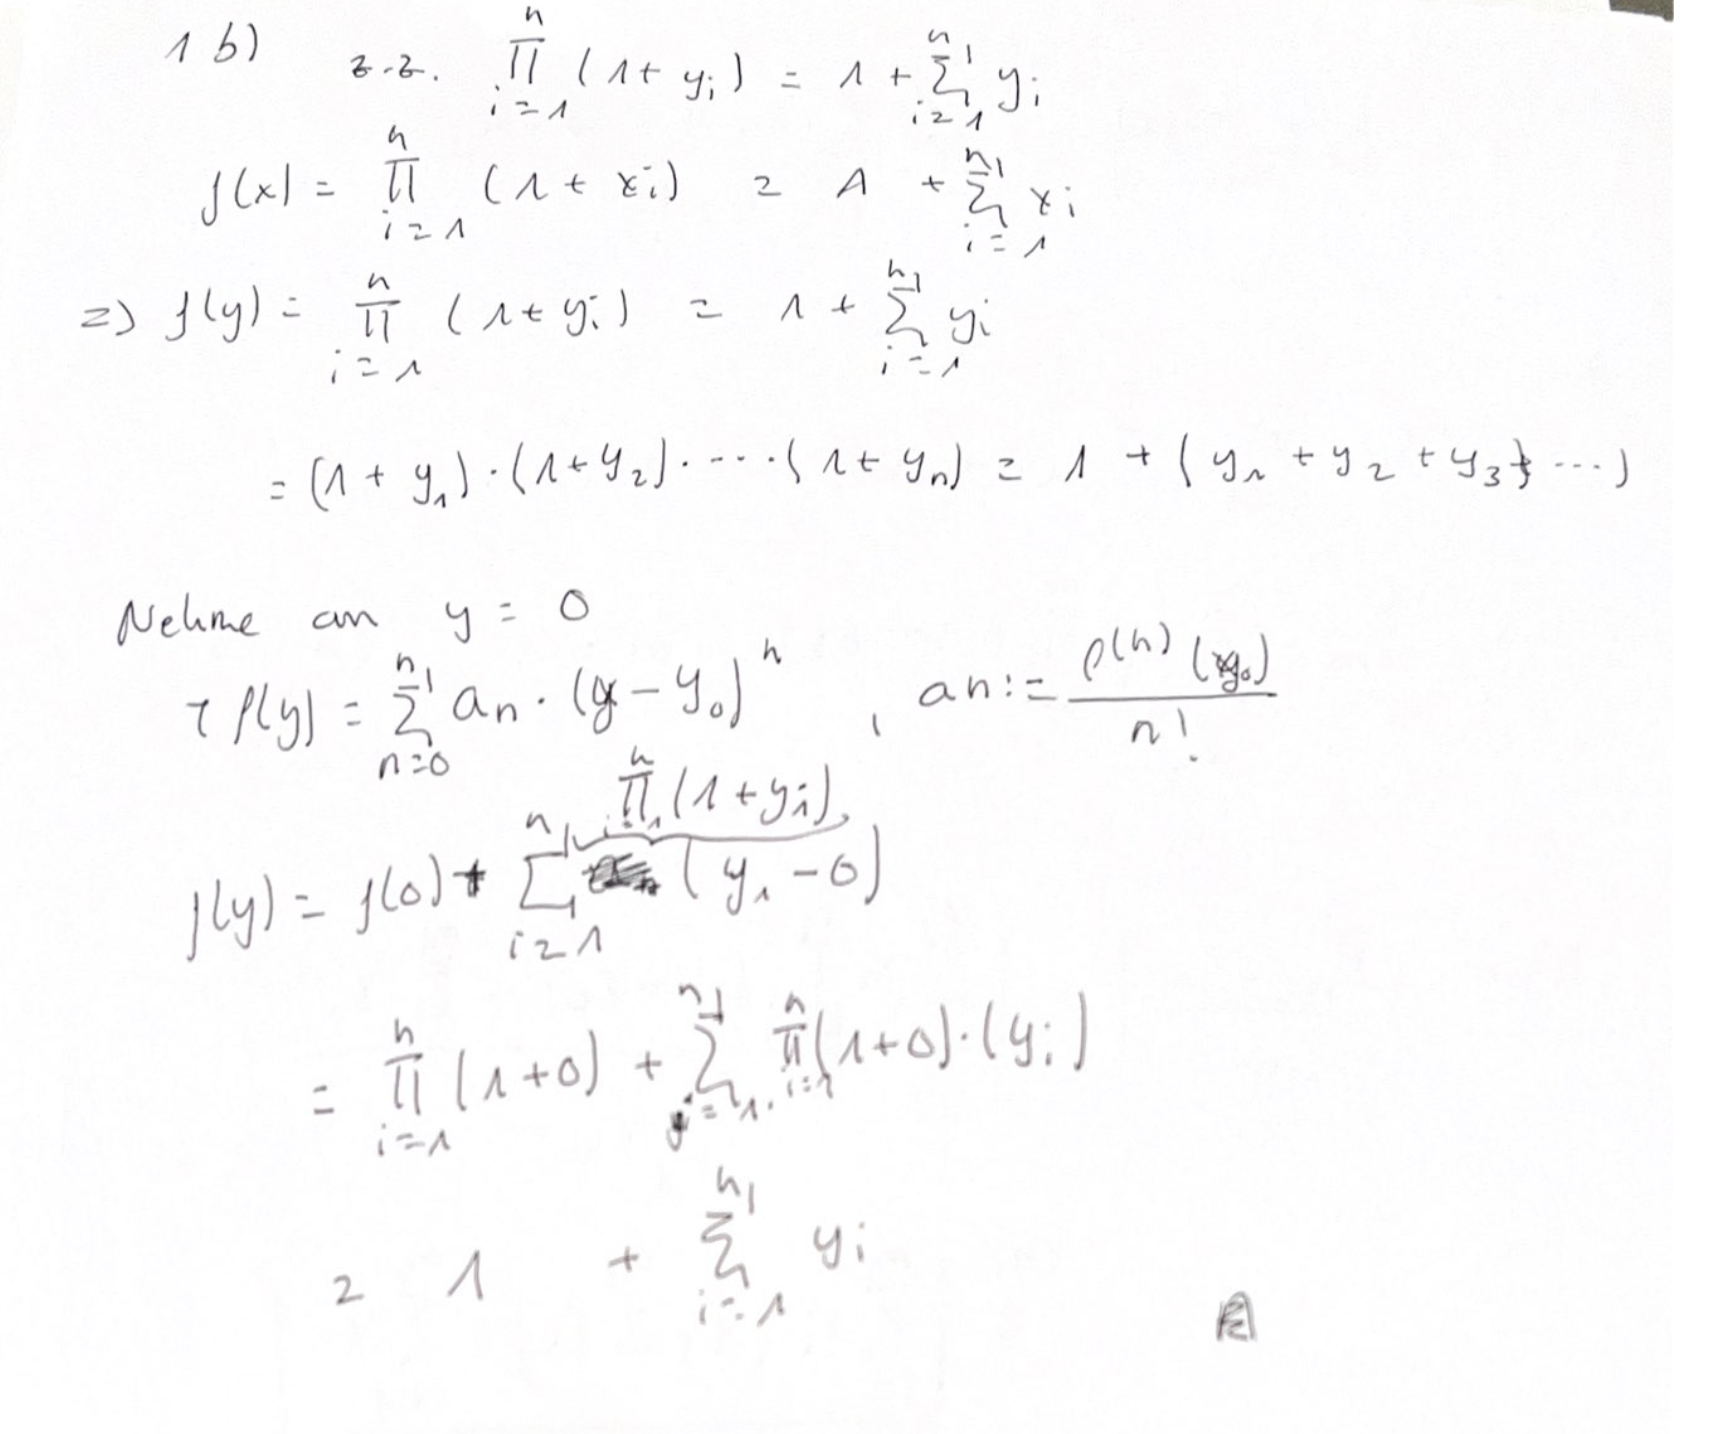 1 b) z.z. ∏_{i=1}^{n} (1+ y_i) = 1 + ∑_{i=1}^{n} y_i
f(x) = ∏_{i=1}^{n} (1+ x_i) = 1 + ∑_{i=1}^{n} x_i
=> f(y) = ∏_{i=1}^{n} (1+ y_i) = 1 + ∑_{i=1}^{n} y_i
= (1+ y_1) · (1+ y_2) · ... · (1+ y_n) = 1 + (y_1 + y_2 + y_3 + ...)
Nehme an y = 0
T f(y) = ∑_{n=0}^{n} a_n · (y - y_0)^n , an := f^{(n)} (y_0) / n!
f(y) = f(0) + ∑_{i=1}^{n} ∏_{i=1}^{n} (1+y_i) (y_1 - 0)
= ∏_{i=1}^{n} (1+0) + ∑_{j=1}^{n} ∏_{i=1}^{n} (1+0) · (y_i)
= 1 + ∑_{i=1}^{n} y_i